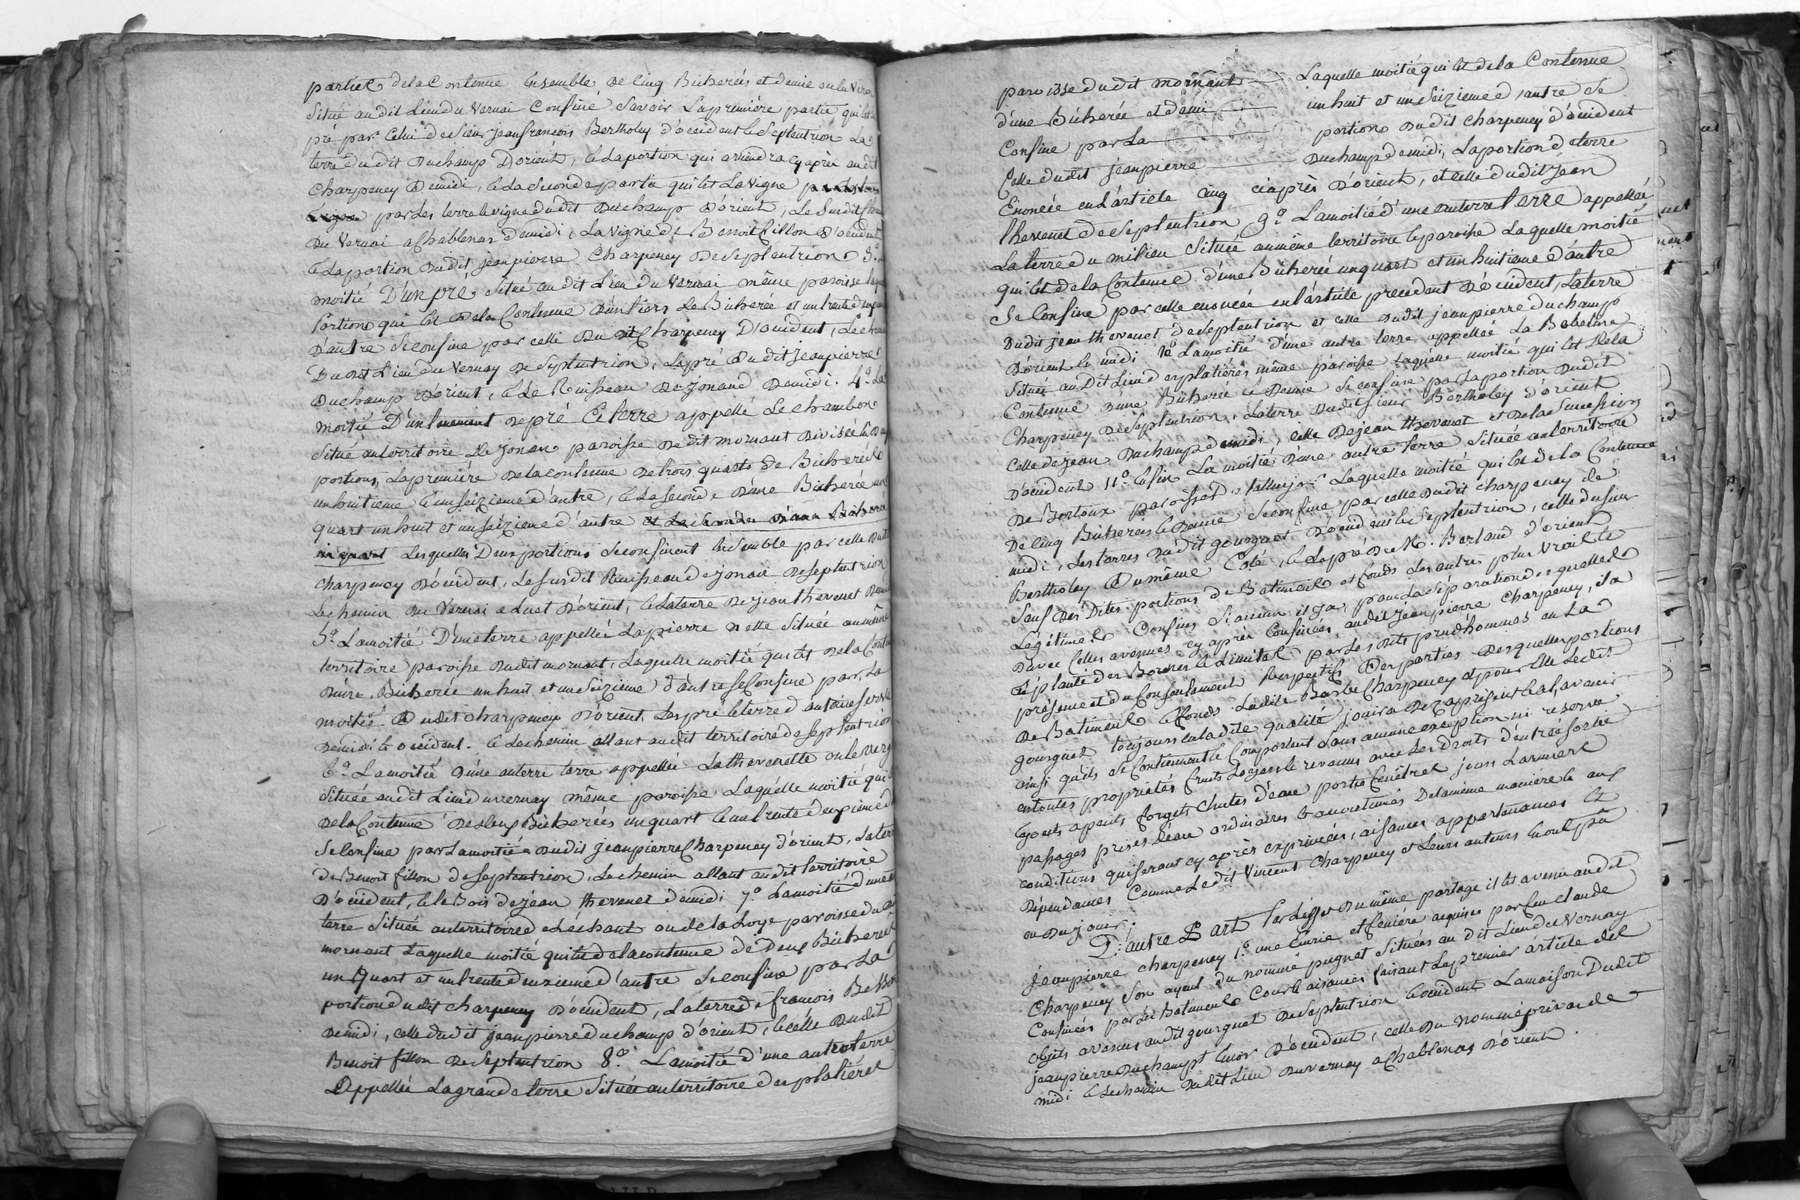 parties de la Contenue Ensemble de Cinq Bicherées et demie ou le
Situé audit Lieu du Vernai Confine Savoir La première partie qui est
pré par Celui de Sieur Jean françois Bertholey d'occident et Septentrion La
terre dudit Duchamp D'orient, et La portion qui aviendra cy après audit
Charpeney de midi, et La Seconde partie qui est La vigne
par Les terre et vigne dudit Duchamp D'orient, Le Susdit
du Vernai a Chablenas de midi, La Vigne de Benoit fillon D'occident
et La portion dudit Jean pierre Charpeney de Septentrion 3.º
moitié D'un pré, Située audit Lieu du Vernai même paroisse
portion qui est de la Contenue D'un tiers de Bicherée et un trente
D'autre Se confine par celle dudit Charpeney D'occident, Le
Dudit Lieu du Vernay de Septentrion, Le pré dudit Jean pierre
Duchamp d'orient, et Le Ruisseau de Jonand de midi. 4.º La
moitié D'un tenement de pré et terre appellé Le chambon
Situé au territoire de Jonan paroisse dudit mornant Divisée
portions, La première de la contenue de trois quarts de Bicherée
un huitieme et un Seizieme d'autre, et La Seconde D'une Bicherée un
quart un huit et un Seizieme d'autre et La Seconde D'une Bicherée
un quart Lesquelles Deux portions Se confinent Ensemble par celle dudit
Charpeney D'occident, Le Susdit Ruisseau de Jonan de Septentrion
Le chemin du Vernai a D'orient, et La terre de Jean thevenet
5.º La moitié D'une terre appellée La pierre nette Située au même
territoire paroisse dudit mornant, Laquelle moitié qui est de la Contenue
D'une Bicherée un huit et un Seizieme d'autre Se Confine par La
moitié dudit Charpeney D'orient, Les pré et terre d'antoine
de midi et occident. et Le chemin allant audit territoire de Septentrion
6.º La moitié D'une autre terre appellée La thevenette ou le
Située audit Lieu du vernay même paroisse, Laquelle moitié qui
de la Contenue de deux Bicherées un quart et un trente deuxième
Se Confine par La moitié dudit Jean pierre Charpeney d'orient, La terre
de Benoit fillon de Septentrion, Le chemin allant audit territoire
D'occident, et le Bois de Jean thevenet de midi 7.º La moitié d'une
terre Située au territoire de Léchant ou de la Loye paroisse dudit
mornant Laquelle moitié qui est de la contenue de Deux Bicherées
un Quart et un trente deuxieme d'autre Se confine par La
portion dudit Charpeney D'occident, La terre de françois
de midi, celle dudit Jean pierre duchamp d'orient, et celle dudit
Benoit fillon de Septentrion 8.º La moitié d'une autre terre
Appellée La grande terre Située au territoire des platières
paroisse dudit mornant Laquelle moitié qui est de la Contenue
d'une Bicherée et demi un huit et un Seizieme d'autre Se
Confine par La portion dudit Charpeney d'occident
Celle dudit Jean pierre Duchamp de midi, La portion de terre
Enoncée en L'article Cinq ciaprès D'orient, et celle dudit Jean
thevenet de Septentrion 9.º La moitié d'une autre terre appellée
La terre du milieu Située au même territoire et paroisse Laquelle moitié
qui est de la Contenue d'une Bicherée un quart et un huitieme d'autre
Se Confine par celle enoncée en L'article precedent D'occident, La terre
dudit Jean thevenet de Septentrion et celle dudit Jean pierre duchamp
D'orient et midi 10.º La moitié d'une autre terre appellée La Babeline
Située au Dit Lieu des platières même paroisse Laquelle moitié qui est de la
Contenue D'une Bicherée et Demie Se confine par La portion dudit
Charpeney de Septentrion, La terre dudit Sieur Bertholey d'orient
Celle de Jean Duchamp de midi, celle de Jean thevenet et de la Succession
D'occident 11.º Enfin La moitié D'une autre terre Située au territoire
de paroisse de Laquelle moitié qui est de la Contenue
De Cinq Bicherées et Demie Se confine par celle dudit Charpeney de
midi, Les terres dudit gourguet D'occident et Septentrion, celle du Sieur
Bertholey du même Coté, et Le pré de M. Berland d'orient
Sauf des Dites portions de Batiments et fonds Les autres plus Vrais et
Légitimes Confins Si aucun il y a, pour La Séparation desquelles
D'avec Celles avenues cy après Confinées audit Jean pierre Charpeney, il a
été planté des Bornes et Limites par Les dits prudhommes en La
présence et du Consentement Respectif des parties Desquelles portions
de Batiments et fonds Ladite Barbe Charpeney et pour Elle Ledit
gourguet toujours en la dite qualité Jouira Dez a present et a L'avenir
ainsi qu'ils Se Continuent et Comportent Sans aucune exception ni reserve
en toutes proprietés fruits Loyaux et revenus avec Les Droits d'entrée Sortie
Egouts apents forgets chutes d'eau porte fenêtres Jours Larmiers
passages prises d'eau ordinaires et accoutumés De la même manière et aux
conditions qui Seront cy après exprimées, aisances appartenances et
Dépendances Comme Ledit Vincent Charpeney et Leurs auteurs en ont pû
ou dû jouir.
D'autre Part Par Lesset du même partage il est avenu audit
Jean pierre Charpeney 1.º une Ecurie et feniere acquises par feu Claude
Charpeney Son ayeul du nommé pugnet Situées au dit Lieu du Vernay
Confinées par Les Batiments Cour et aisances faisant Le premier article des
objets avenus audit gourguet de Septentrion et occident La maison Dudit
Jean pierre Duchampt Encor D'occident, celle du nommé privade de
midi et Le chemin dudit Lieu du vernay a Chablenas D'orient